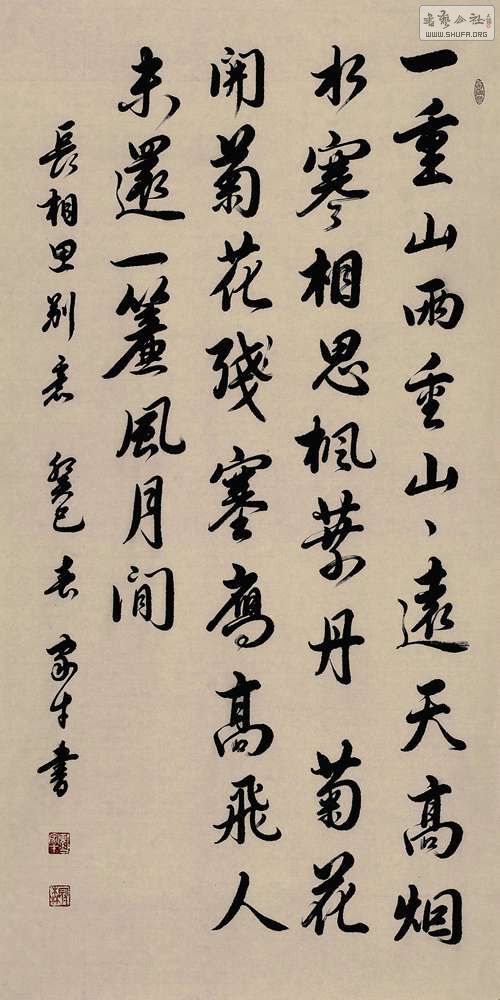 書藝公社
WWW.SHUFA.ORG
一重山兩重山丶遠天高烟
水寒相思楓葉丹 菊花
開菊花殘塞鴈高飛人
未還一簾風月閒
長相思别意 癸巳春 書